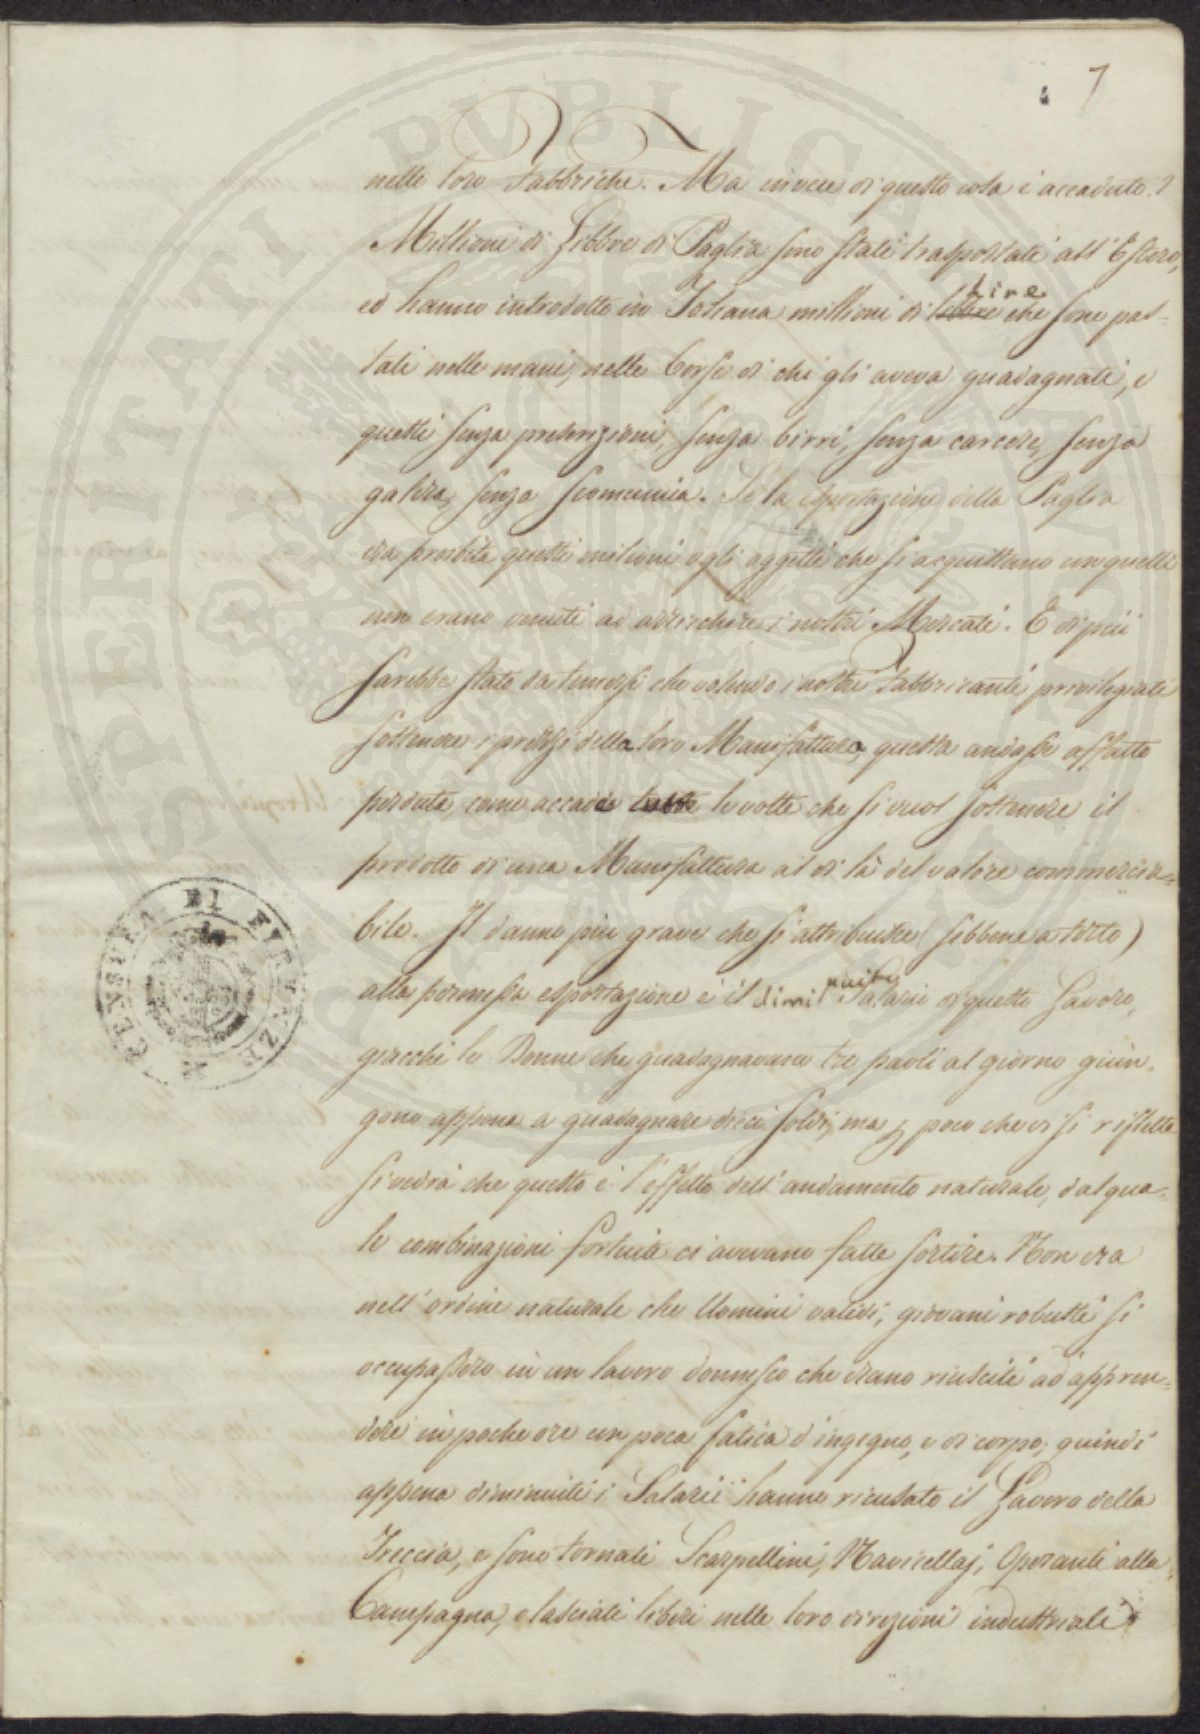 7
nelle loro Fabbriche. Ma invece di questo cosa è accaduto?
Millioni di Libbre di Paglia sono stati trasportati all'Estero,
ed hanno introdotto in Toscana millioni di libbre Lire che sono pas-
sati nelle mani, nelle borse di chi gli aveva guadagnati, e
questi senza proscrizioni, senza birri, senza carcere, senza
galera, senza scomunica. Se la esportazione della Paglia
era proibita questi milioni o gli oggetti che si acquistano con quelli
non erano venuti ad arricchire i nostri Mercati. E di più
sarebbe stato da temersi che volendo i nostri Fabbricanti privilegiati
sostenere i prezzi della loro Manifattura, questa andasse affatto
perduta, come accade tutte le volte che si vuol sostenere il
prodotto di una Manifattura al di là del valore commercia-
bile. Il danno più grave che si attribuisce (sibbene a torto)
alla permessa esportazione è il diminuito Salario di questo Lavoro,
giacchè le Donne che guadagnavano tre paoli al giorno giun-
gono appena a guadagnare dieci soldi, ma p poco che vi si rifletta
si vedrà che questo è l'effetto dell'andamento naturale, dal qua-
le combinazioni fortuite ci avevano fatte sortire. Non era
nell'ordine naturale che Uomini validi, giovani robusti si
occupassero in un lavoro donnesco che erano riusciti ad appren-
dere in poche ore con poca fatica d'ingegno, e di corpo; quindi
appena diminuiti i Salarii hanno ricusato il Lavoro della
Treccia, e sono tornati Scarpellini, Navicellaj, Operanti alla
Campagna, e lasciati liberi nelle loro direzioni industriali
CENSURA DI FIRENZE
PROSPERITATI PUBLICAE